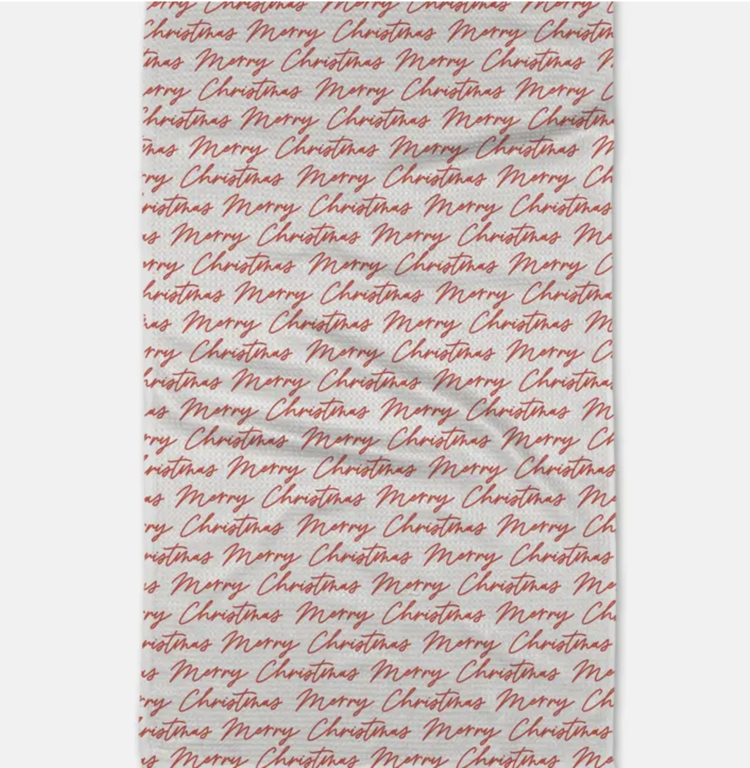 Merry Christmas Merry Christmas Merry
Christmas Merry Christmas Merry Christmas
Merry Christmas Merry Christmas
Merry Christmas Merry Christmas Merry
Christmas Merry Christmas Merry Christmas
Merry Christmas Merry Christmas
Christmas Merry Christmas Merry
Merry Christmas Merry Christmas
Merry Christmas Merry Christmas
Christmas Merry Christmas Merry
Merry Christmas Merry Christmas
Merry Christmas Merry Christmas
Christmas Merry Christmas Merry
Merry Christmas Merry Christmas
Merry Christmas Merry Christmas
Christmas Merry Christmas Merry
Merry Christmas Merry Christmas
Merry Christmas Merry Christmas
Christmas Merry Christmas Merry
Merry Christmas Merry Christmas
Merry Christmas Merry Christmas
Christmas Merry Christmas Merry
Merry Christmas Merry Christmas
Merry Christmas Merry Christmas
Christmas Merry Christmas Merry
Merry Christmas Merry Christmas
Merry Christmas Merry Christmas